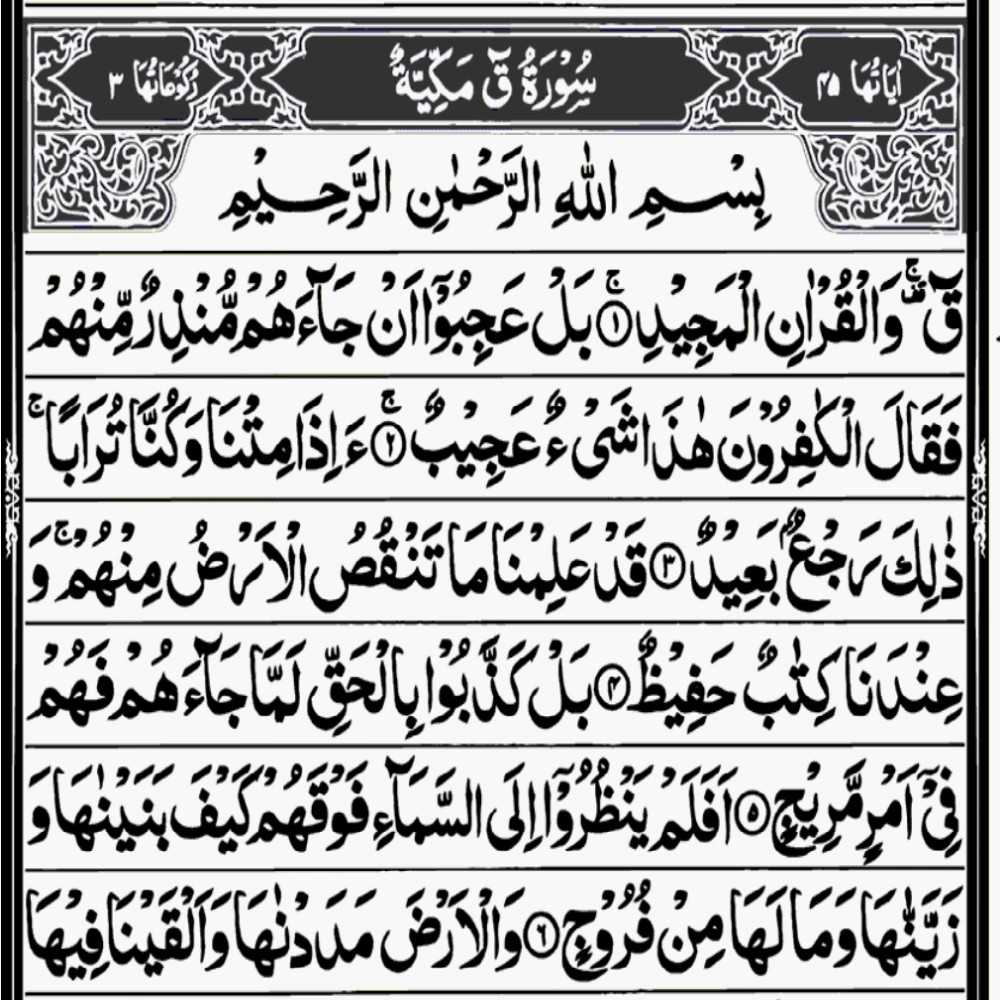 اٰیَاتُهَا ۴۵ سُوْرَةُ قٓ مَكِّيَّةٌ رُكُوْعَاتُهَا ۳
بِسْمِ اللهِ الرَّحْمٰنِ الرَّحِيْمِ
قٓ ۚ وَالْقُرْاٰنِ الْمَجِيْدِ ۚ﴿۱﴾ بَلْ عَجِبُوْۤا اَنْ جَآءَهُمْ مُّنْذِرٌ مِّنْهُمْ
فَقَالَ الْكٰفِرُوْنَ هٰذَا شَیْءٌ عَجِيْبٌ ۚ﴿۲﴾ ءَاِذَا مِتْنَا وَكُنَّا تُرَابًا ۚ
ذٰلِكَ رَجْعٌۢ بَعِيْدٌ ﴿۳﴾ قَدْ عَلِمْنَا مَا تَنْقُصُ الْاَرْضُ مِنْهُمْ ۚ وَ
عِنْدَنَا كِتٰبٌ حَفِيْظٌ ﴿۴﴾ بَلْ كَذَّبُوْا بِالْحَقِّ لَمَّا جَآءَهُمْ فَهُمْ
فِیْۤ اَمْرٍ مَّرِيْجٍ ﴿۵﴾ اَفَلَمْ يَنْظُرُوْۤا اِلَی السَّمَآءِ فَوْقَهُمْ كَيْفَ بَنَيْنٰهَا وَ
زَيَّنّٰهَا وَمَا لَهَا مِنْ فُرُوْجٍ ﴿۶﴾ وَالْاَرْضَ مَدَدْنٰهَا وَاَلْقَيْنَا فِيْهَا